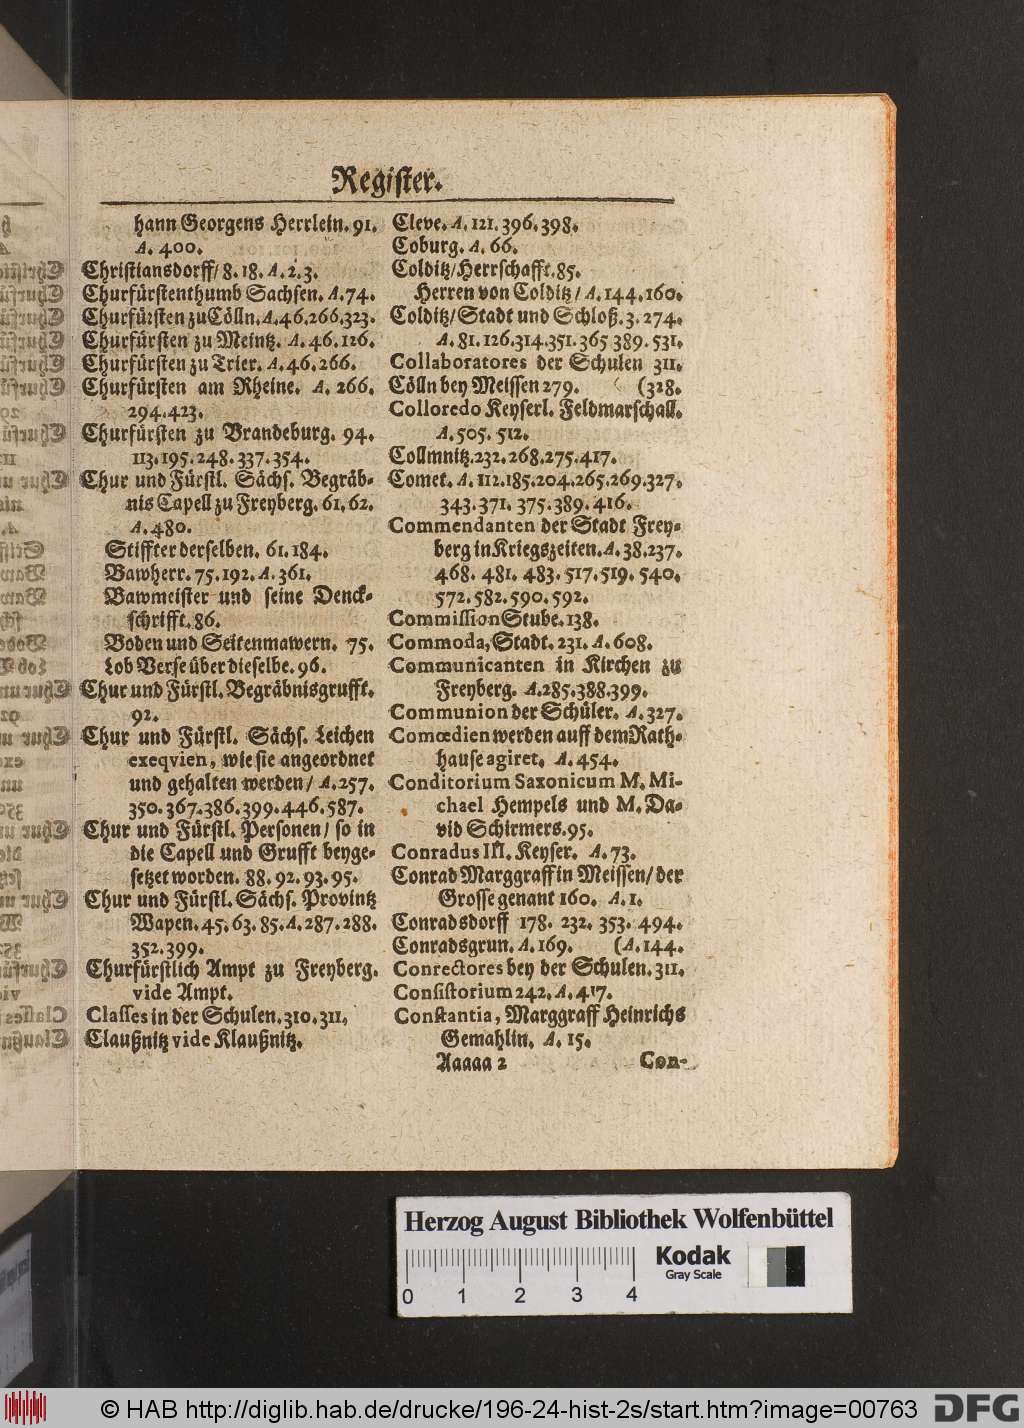 Register.
hann Georgens Herrlein. 91.
A. 400.
Christiansdorff/ 8. 18. A. 2. 3.
Churfürstenthumb Sachsen. A. 74.
Churfürsten zu Cölln. A. 46. 266. 323.
Churfürsten zu Meintz. A. 46. 126.
Churfürsten zu Trier. A. 46. 266.
Churfürsten am Rheine. A. 266.
294. 423.
Churfürsten zu Brandeburg. 94.
113. 195. 248. 337. 354.
Chur und Fürstl. Sächs. Begräb-
nis Capell zu Freyberg. 61. 62.
A. 480.
Stiffter derselben. 61. 184.
Bawherr. 75. 192. A. 361.
Bawmeister und seine Denck-
schrifft. 86.
Boden und Seitenmawern. 75.
Lob Verse über dieselbe. 96.
Chur und Fürstl. Begräbnisgrufft.
92.
Chur und Fürstl. Sächs. Leichen
exeqvien, wie sie angeordnet
und gehalten werden/ A. 257.
350. 367. 386. 399. 446. 587.
Chur und Fürstl. Personen/ so in
die Capell und Grufft beyge-
setzet worden. 88. 92. 93. 95.
Chur und Fürstl. Sächs. Provintz
Wapen. 45. 63. 85. A. 287. 288.
352. 399.
Churfürstlich Ampt zu Freyberg.
vide Ampt.
Classes in der Schulen. 310. 311.
Claußnitz vide Klaußnitz.
Cleve. A. 121. 396. 398.
Coburg. A. 66.
Colditz/ Herrschafft. 85.
Herren von Colditz/ A. 144. 160.
Colditz/ Stadt und Schloß. 3. 274.
A. 81. 126. 314. 351. 365 389. 531.
Collaboratores der Schulen 311.
Cölln bey Meissen 279. (328.
Colloredo Keyserl. Feldmarschall.
A. 505. 512.
Collmnitz. 232. 268. 275. 417.
Comet. A. 112. 185. 204. 265. 269. 327.
343. 371. 375. 389. 416.
Commendanten der Stadt Frey-
berg in Kriegszeiten. A. 38. 237.
468. 481. 483. 517. 519. 540.
572. 582. 590. 592.
Commission Stube. 138.
Commoda, Stadt. 231. A. 608.
Communicanten in Kirchen zu
Freyberg. A. 285. 388. 399.
Communion der Schüler. A. 327.
Comœdien werden auff dem Rath-
hause agiret. A. 454.
Conditorium Saxonicum M. Mi-
chael Hempels und M. Da-
vid Schirmers. 95.
Conradus III. Keyser. A. 73.
Conrad Marggraff in Meissen/ der
Grosse genant 160. A. 1.
Conradsdorff 178. 232. 353. 494.
Conradsgrun. A. 169. (A. 144.
Conrectores bey der Schulen. 311.
Consistorium 242. A. 417.
Constantia, Marggraff Heinrichs
Gemahlin. A. 15.
Aaaaa 2 Con-
Herzog August Bibliothek Wolfenbüttel
Kodak
Gray Scale
0 1 2 3 4
© HAB http://diglib.hab.de/drucke/196-24-hist-2s/start.htm?image=00763
DFG